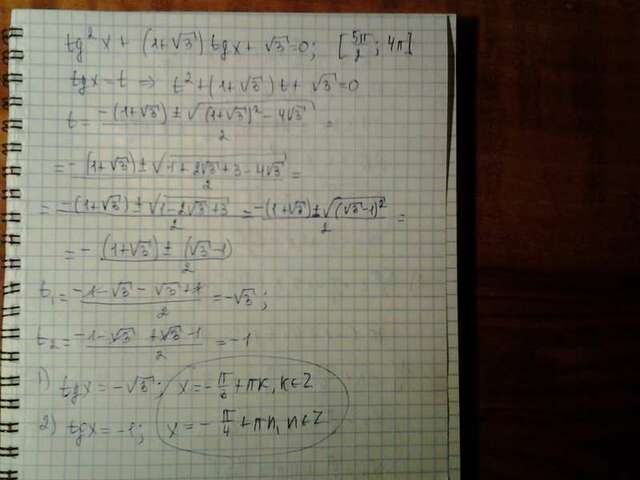 tg²x + (1+√3)tgx + √3 = 0; [5π/2; 4π]
tgx = t ⇒ t² + (1+√3)t + √3 = 0
t = (-(1+√3) ± √((1+√3)² - 4√3))/2 =
= (-(1+√3) ± √(1+2√3+3-4√3))/2 =
= (-(1+√3) ± √(1-2√3+3))/2 = (-(1+√3) ± √((√3-1)²))/2 =
= (-(1+√3) ± (√3-1))/2
t₁ = (-1-√3-√3+1)/2 = -√3;
t₂ = (-1-√3+√3-1)/2 = -1
1) tgx = -√3; x = -π/6 + πk, k∈Z
2) tgx = -1; x = -π/4 + πn, n∈Z